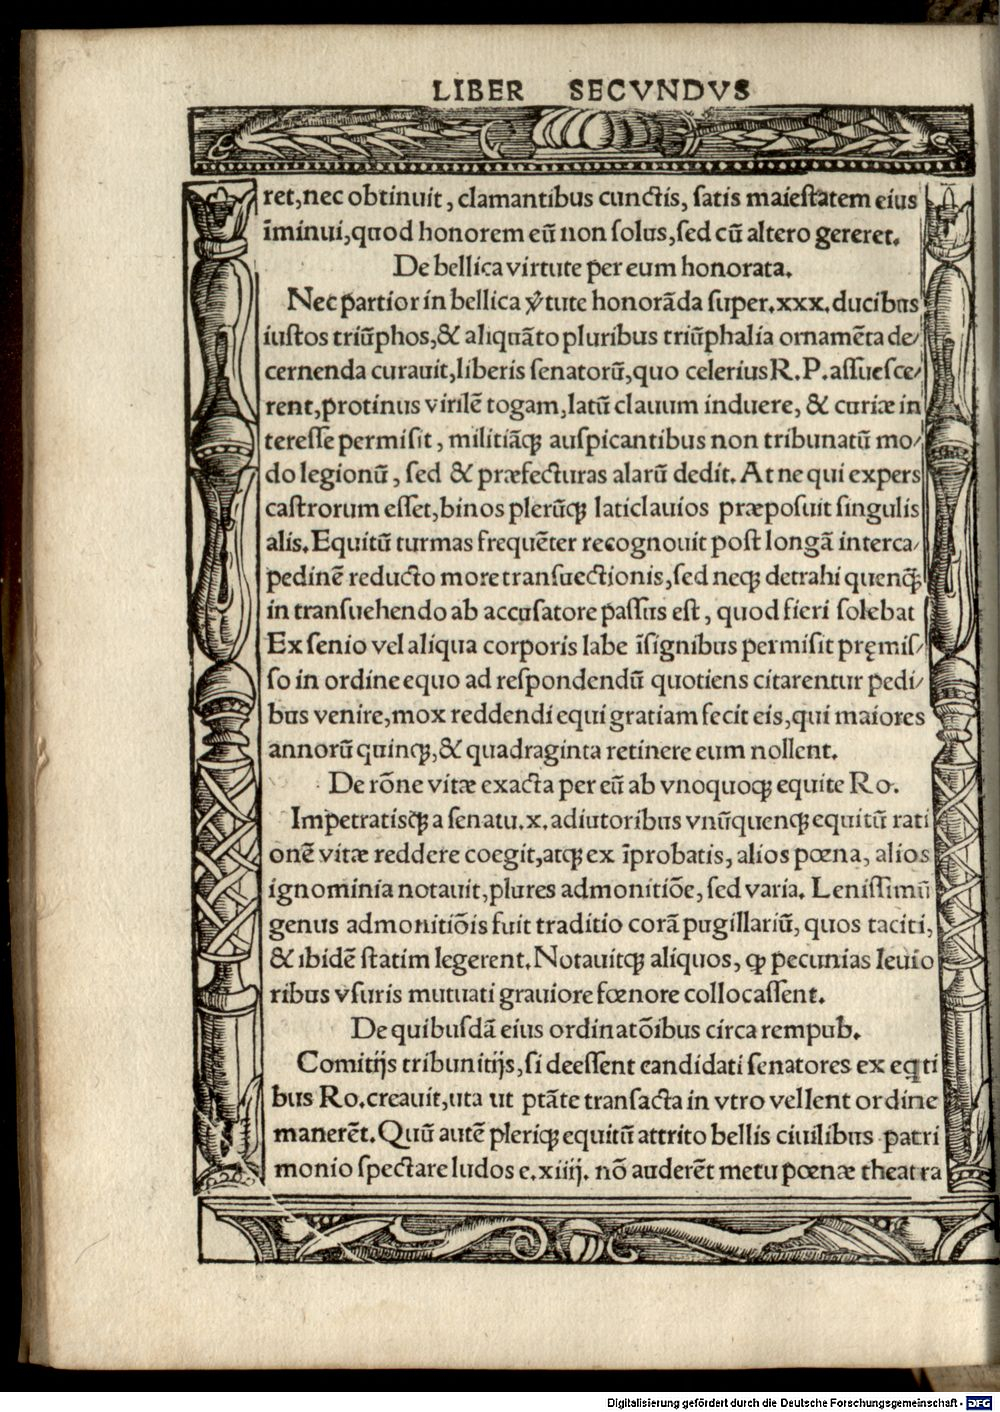 LIBER SECVNDVS
ret,nec obtinuit, clamantibus cunctis, ſatis maieſtatem eius
īminui,quod honorem eū non ſolus,ſed cū altero gereret.
De bellica virtute per eum honorata.
Nec partior in bellica v̓tute honorāda ſuper.xxx.ducibus
iuſtos triūphos,& aliquāto pluribus triūphalia ornamēta de⸗
cernenda curauit,liberis ſenatorū,quo celerius R.P.aſſueſce⸗
rent,protinus virilē togam,latū clauum induere, & curiæ in
tereſſe permiſit, militiāqꝫ auſpicantibus non tribunatū mo⸗
do legionū, ſed & præfecturas alarū dedit. At ne qui expers
caſtrorum eſſet,binos plerūqꝫ laticlauios præpoſuit ſingulis
alis.Equitū turmas frequēter recognouit poſt longā interca⸗
pedinē reducto more tranſuectionis,ſed neqꝫ detrahi quenq̄ꝫ
in tranſuehendo ab accuſatore paſſus eſt, quod fieri ſolebat
Ex ſenio vel aliqua corporis labe īſignibus permiſit pręmiſ⸗
ſo in ordine equo ad reſpondendū quotiens citarentur pedi⸗
bus venire,mox reddendi equi gratiam fecit eis,qui maiores
annorū quinqꝫ,& quadraginta retinere eum nollent.
De rōne vitæ exacta per eū ab vnoquoqꝫ equite Ro.
Impetratisqꝫ a ſenatu.x.adiutoribus vnūquenqꝫ equitū rati
onē vitæ reddere coegit,atqꝫ ex īprobatis, alios pœna, alios
ignominia notauit,plures admonitiōe, ſed varia. Leniſſimū
genus admonitiōis fuit traditio corā pugillariū, quos taciti,
& ibidē ſtatim legerent.Notauitqꝫ aliquos, ꝙ pecunias leuio
ribus vſuris mutuati grauiore fœnore collocaſſent.
De quibuſdā eius ordinatōibus circa rempub.
Comitijs tribunitijs,ſi deeſſent candidati ſenatores ex eq̇ti
bus Ro.creauit,uta ut ptāte tranſacta in vtro vellent ordine
manerēt.Quū autē pleriqꝫ equitū attrito bellis ciuilibus patri
monio ſpectare ludos e.xiiij. nō auderēt metu pœnæ theatra
Digitalisierung gefördert durch die Deutsche Forschungsgemeinschaft - DFG